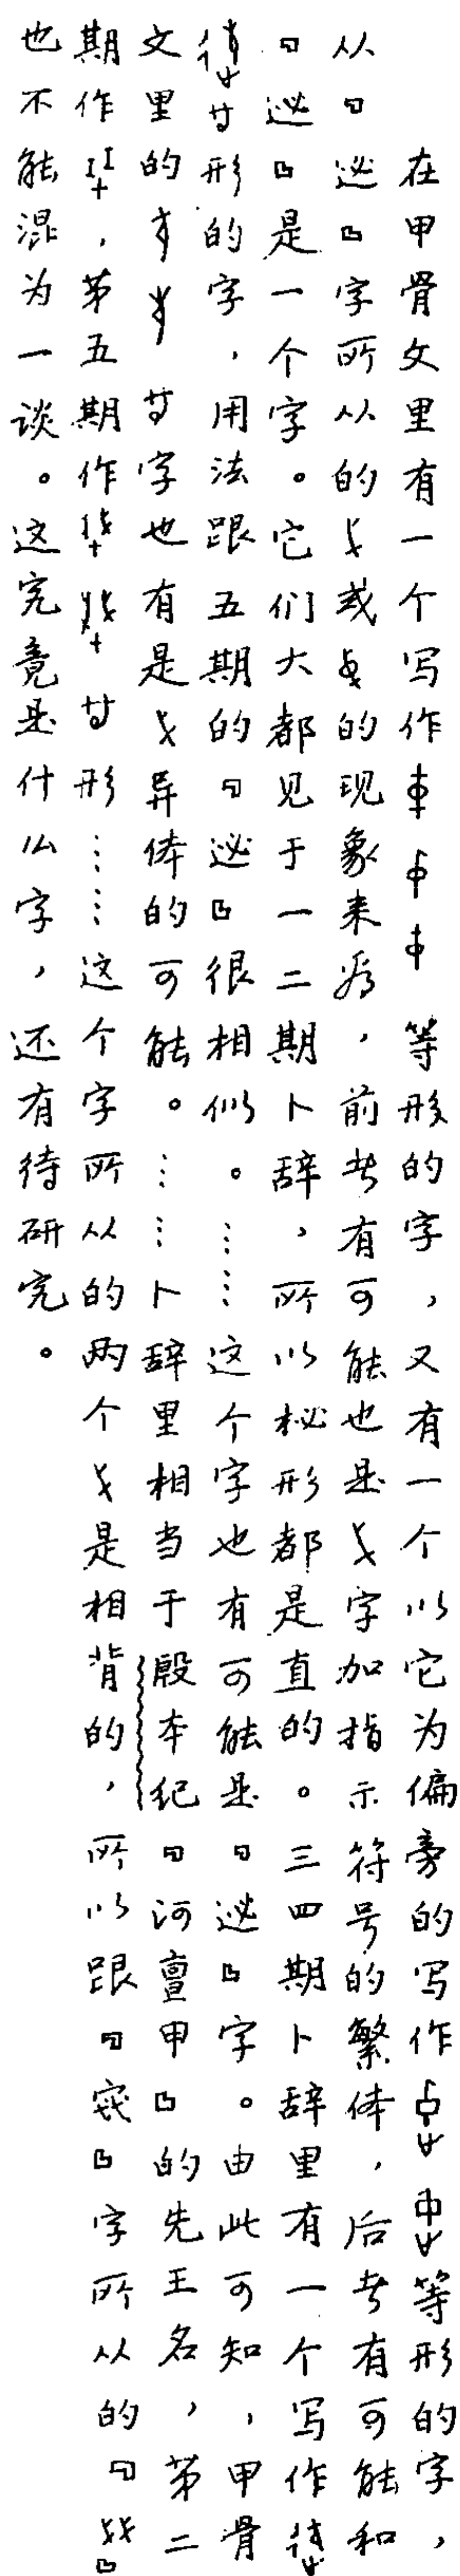 在甲骨文里有一个写作等形的字，又有一个以它为偏旁的写作等形的字，
从「䢋」字所从的或的现象来看，前者有可能也是字加指示符号的繁体，后者有可能和
「䢋」是一个字。它们大都见于一二期卜辞，所以柲形都是直的。三四期卜辞里有一个写作
形的字，用法跟五期的「䢋」很相似。……这个字也有可能是「䢋」字。由此可知，甲骨
文里的字也有是异体的可能。……卜辞里相当于殷本纪「河亶甲」的先王名，第二
期作，第五期作形……这个字所从的两个是相背的，所以跟「」字所从的「」
也不能混为一谈。这究竟是什么字，还有待研究。